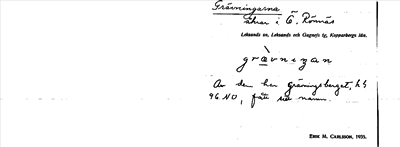 Grävningarna
åkrar i Ö. Rönnäs
Leksands sn, Leksands och Gagnefs tg, Kopparbergs län.
grævnıŋan
Av den här grävningsberget, h 4
96 NO, fått sitt namn.
ERIK M. CARLSSON, 1935.